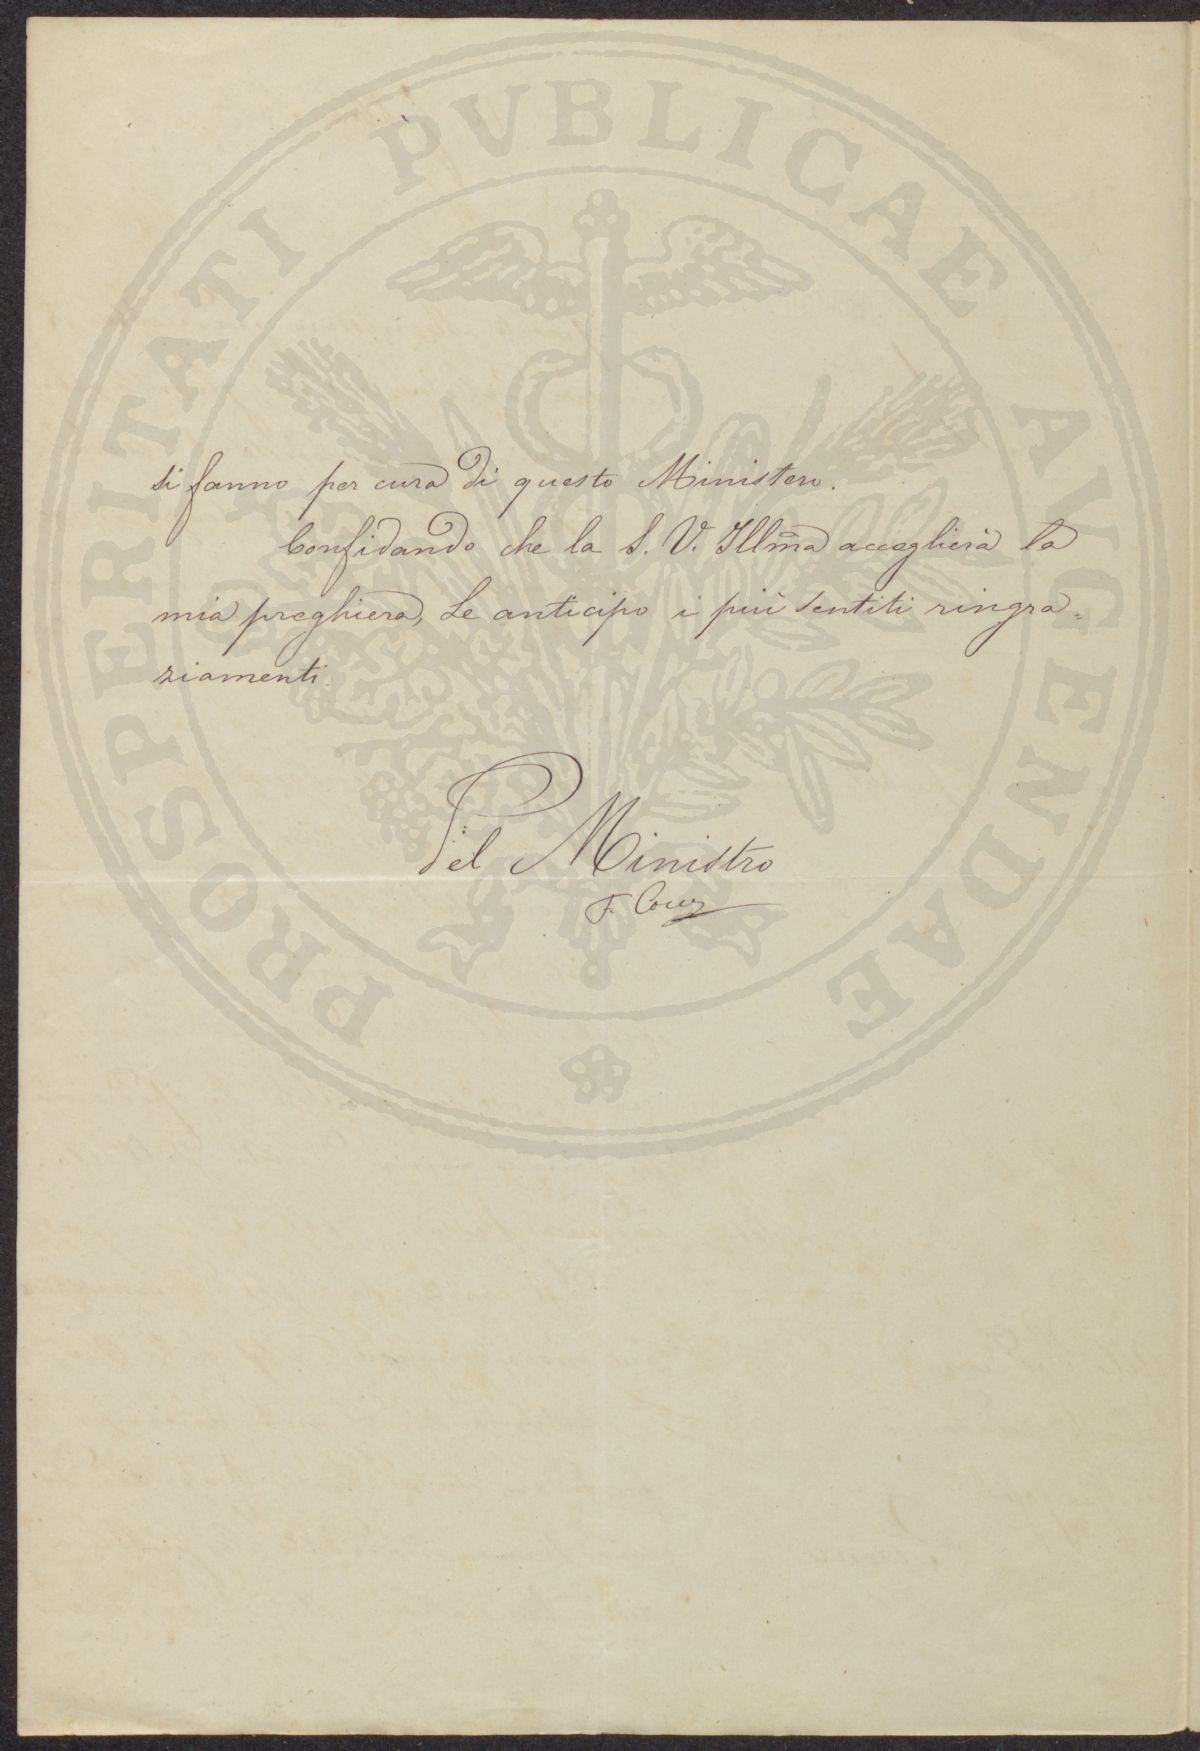 PROSPERITATI PVBLICAE AVGENDAE
si fanno per cura di questo Ministero.
Confidando che la S. V. Illma accoglierà la
mia preghiera, Le anticipo i più sentiti ringra=
ziamenti.
Pel Ministro
F.